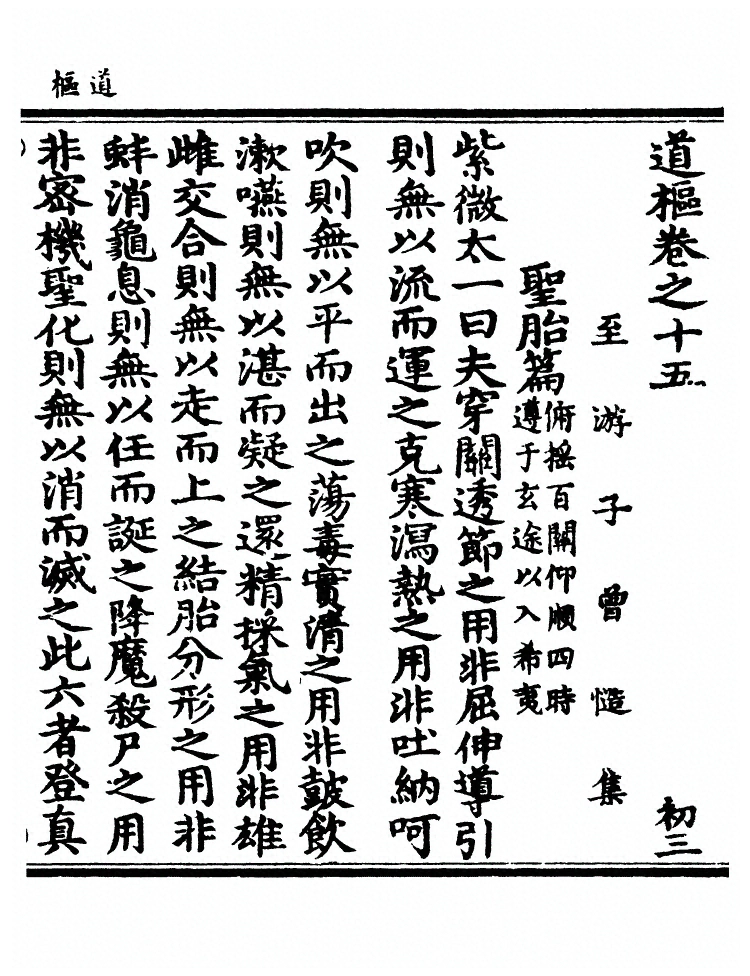 道樞
道樞卷之十五
初三
至游子曾慥集
聖胎篇
俯搖百關仰順四時
遵于玄途以入希夷
紫微太一曰夫穿關透節之用非屈伸導引
則無以流而運之克寒瀉熱之用非吐納呵
吹則無以平而出之蕩毒實清之用非鼓飲
漱嚥則無以湛而凝之還精採氣之用非雄
雌交合則無以走而上之結胎分形之用非
蚌消龜息則無以任而誕之降魔殺尸之用
非密機聖化則無以消而滅之此六者登真